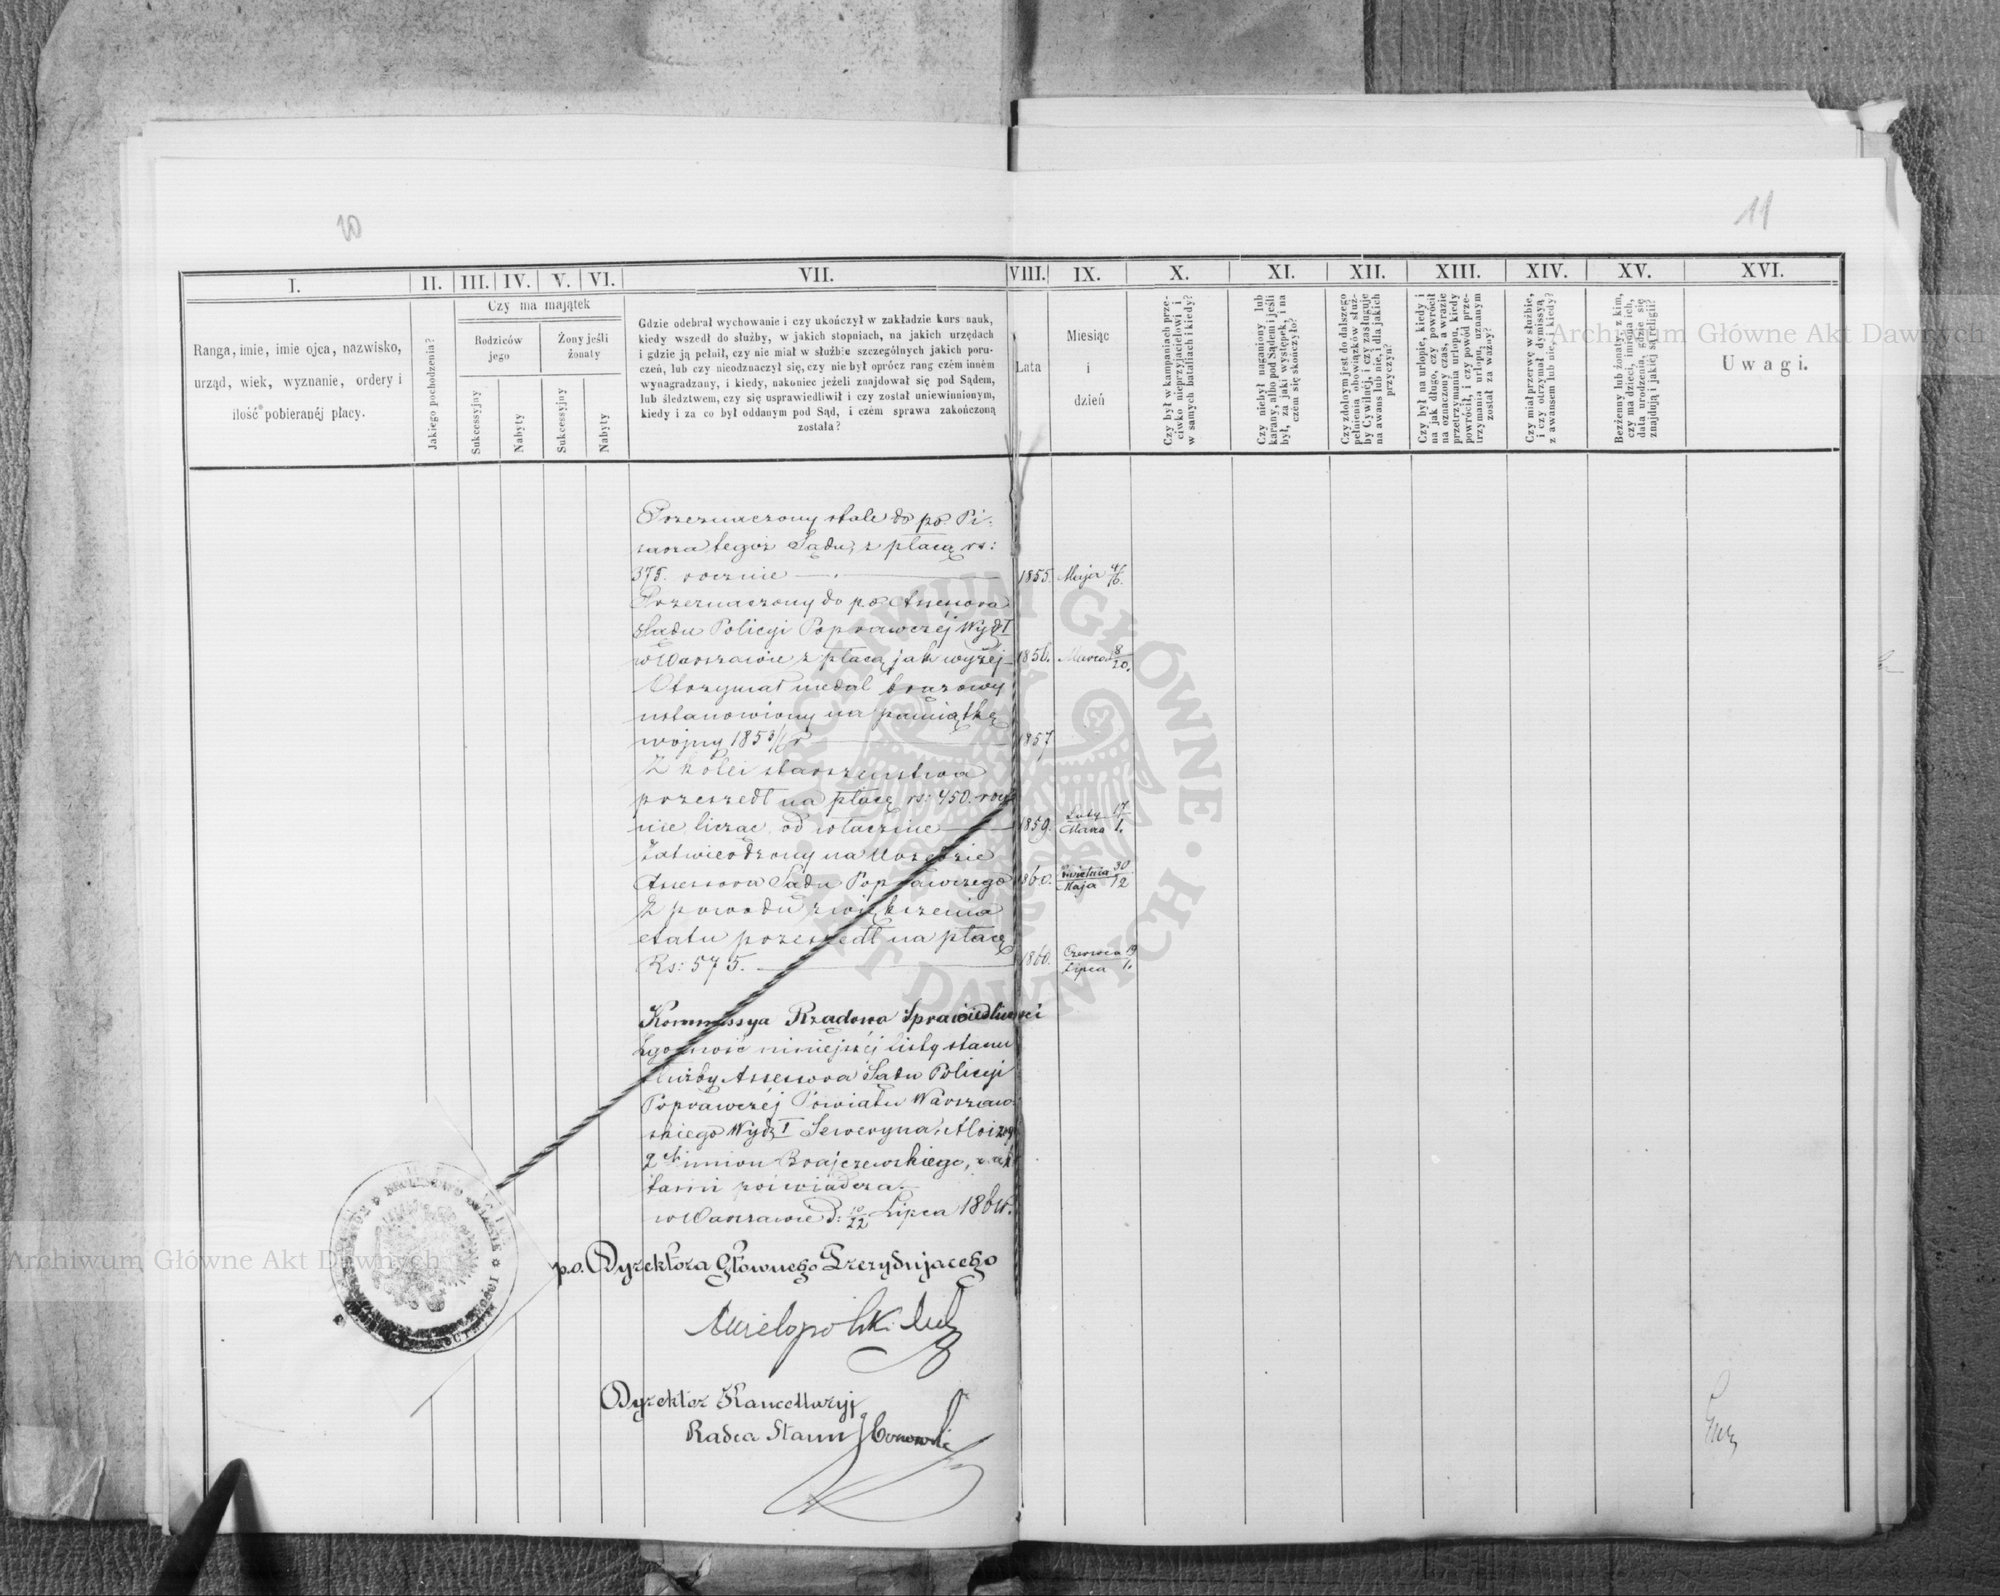 10
11
I.
II.
III.
IV.
V.
VI.
VII.
VIII.
IX.
X.
XI.
XII.
XIII.
XIV.
XV.
XVI.
Ranga, imie, imie ojca, nazwisko,
urząd, wiek, wyznanie, ordery i
ilość pobieranéj płacy.
Jakiego pochodzenia?
Czy ma majątek
Rodziców
jego
Żony jeśli
żonaty
Sukcessyjny
Nabyty
Sukcessyjny
Nabyty
Gdzie odebrał wychowanie i czy ukończył w zakładzie kurs nauk,
kiedy wszedł do służby, w jakich stopniach, na jakich urzędach
i gdzie ją pełnił, czy nie miał w służbie szczególnych jakich poru-
czeń, lub czy nieodznaczył się, czy nie był oprócz rang czém inném
wynagradzany, i kiedy, nakoniec jeżeli znajdował się pod Sądem,
lub śledztwem, czy się usprawiedliwił i czy został uniewinnionym,
kiedy i za co był oddanym pod Sąd, i czém sprawa zakończoną
została?
Lata
Miesiąc
i
dzień
Czy był w kampaniach prze-
ciwko nieprzyjacielowi i
w samych bataliach i kiedy?
Czy niebył naganiony lub
karany, albo pod Sądem i jeśli
był, za jaki występek, i na
czém się skończyło?
Czy zdolnym jest do dalszego
pełnienia obowiązków służ-
by Cywilnéj, i czy zasługuje
na awans lub nie, i dla jakich
przyczyn?
Czy był na urlopie, kiedy i
na jak długo, czy powrócił
na oznaczony czas, a wrazie
przetrzymania urlopu, kiedy
powrócił, i czy powód prze-
trzymania urlopu, uznanym
został za ważny?
Czy miał przerwę w służbie,
i czy otrzymał dymissyą
z awansem lub nie, i kiedy?
Bezżenny lub żonaty, z kim,
czy ma dzieci, imiona ich,
data urodzenia, gdzie się
znajdują i jakiéj są religji?
Uwagi.
Przeznaczony stale do po. Pi-
sarza tegoż Sądu, z płacą rs:
375. rocznie 1855. Maja 4/16.
Przeznaczony do p.o. Assessora
Sądu Policyi Poprawczéj Wydz I
w Warszawie z płacą jak wyżej 1856. Marca 8/20.
Otrzymał medal bronzowy
ustanowiony na pamiątkę
wojny 1853/6 r 1857
Z kolei starszeństwa
przeszedł na płacę rs: 450. rocz
nie, licząc od włącznie 1859. Luty 17/Marca 1.
Zatwierdzony na Urzędzie
Assessora Sądu Poprawczego 1860. Kwietnia 30/Maja 12
Z powodu zwiększenia
etatu przeszedł na płacę
Rs: 575. 1860. Czerwca 19/Lipca 1.
Kommissya Rządowa Sprawiedliwości
Zgodność niniejszéj listy stanu
służby Assessora Sądu Policyi
Poprawczéj Powiatu Warszaw-
skiego Wydz I Seweryna, Aloizego
2ch imion Brajczewskiego, z ak
tami poświadcza.
w Warszawie d: 10/22 Lipca 1861r.
p.o. Dyrektora Głównego Prezydującego
Wielopolski
Dyrektor Kancellaryi
Radca Stanu
Archiwum Główne Akt Dawnych
Archiwum Główne Akt Dawnych
ARCHIWUM GŁÓWNE AKT DAWNYCH